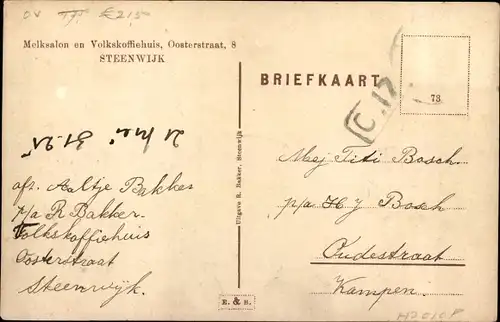 OV
Melksalon en Volkskoffiehuis, Oosterstraat, 8
STEENWIJK
BRIEFKAART
73
C.12
21 Mei 31-25
Uitgave R. Bakker, Steenwijk
afz. Aaltje Bakker
p/a R Bakker
Volkskoffiehuis
Oosterstraat
Steenwijk.
Mej Titi Bosch.
p/a H J Bosch
Oudestraat
Kampen
E. & B.